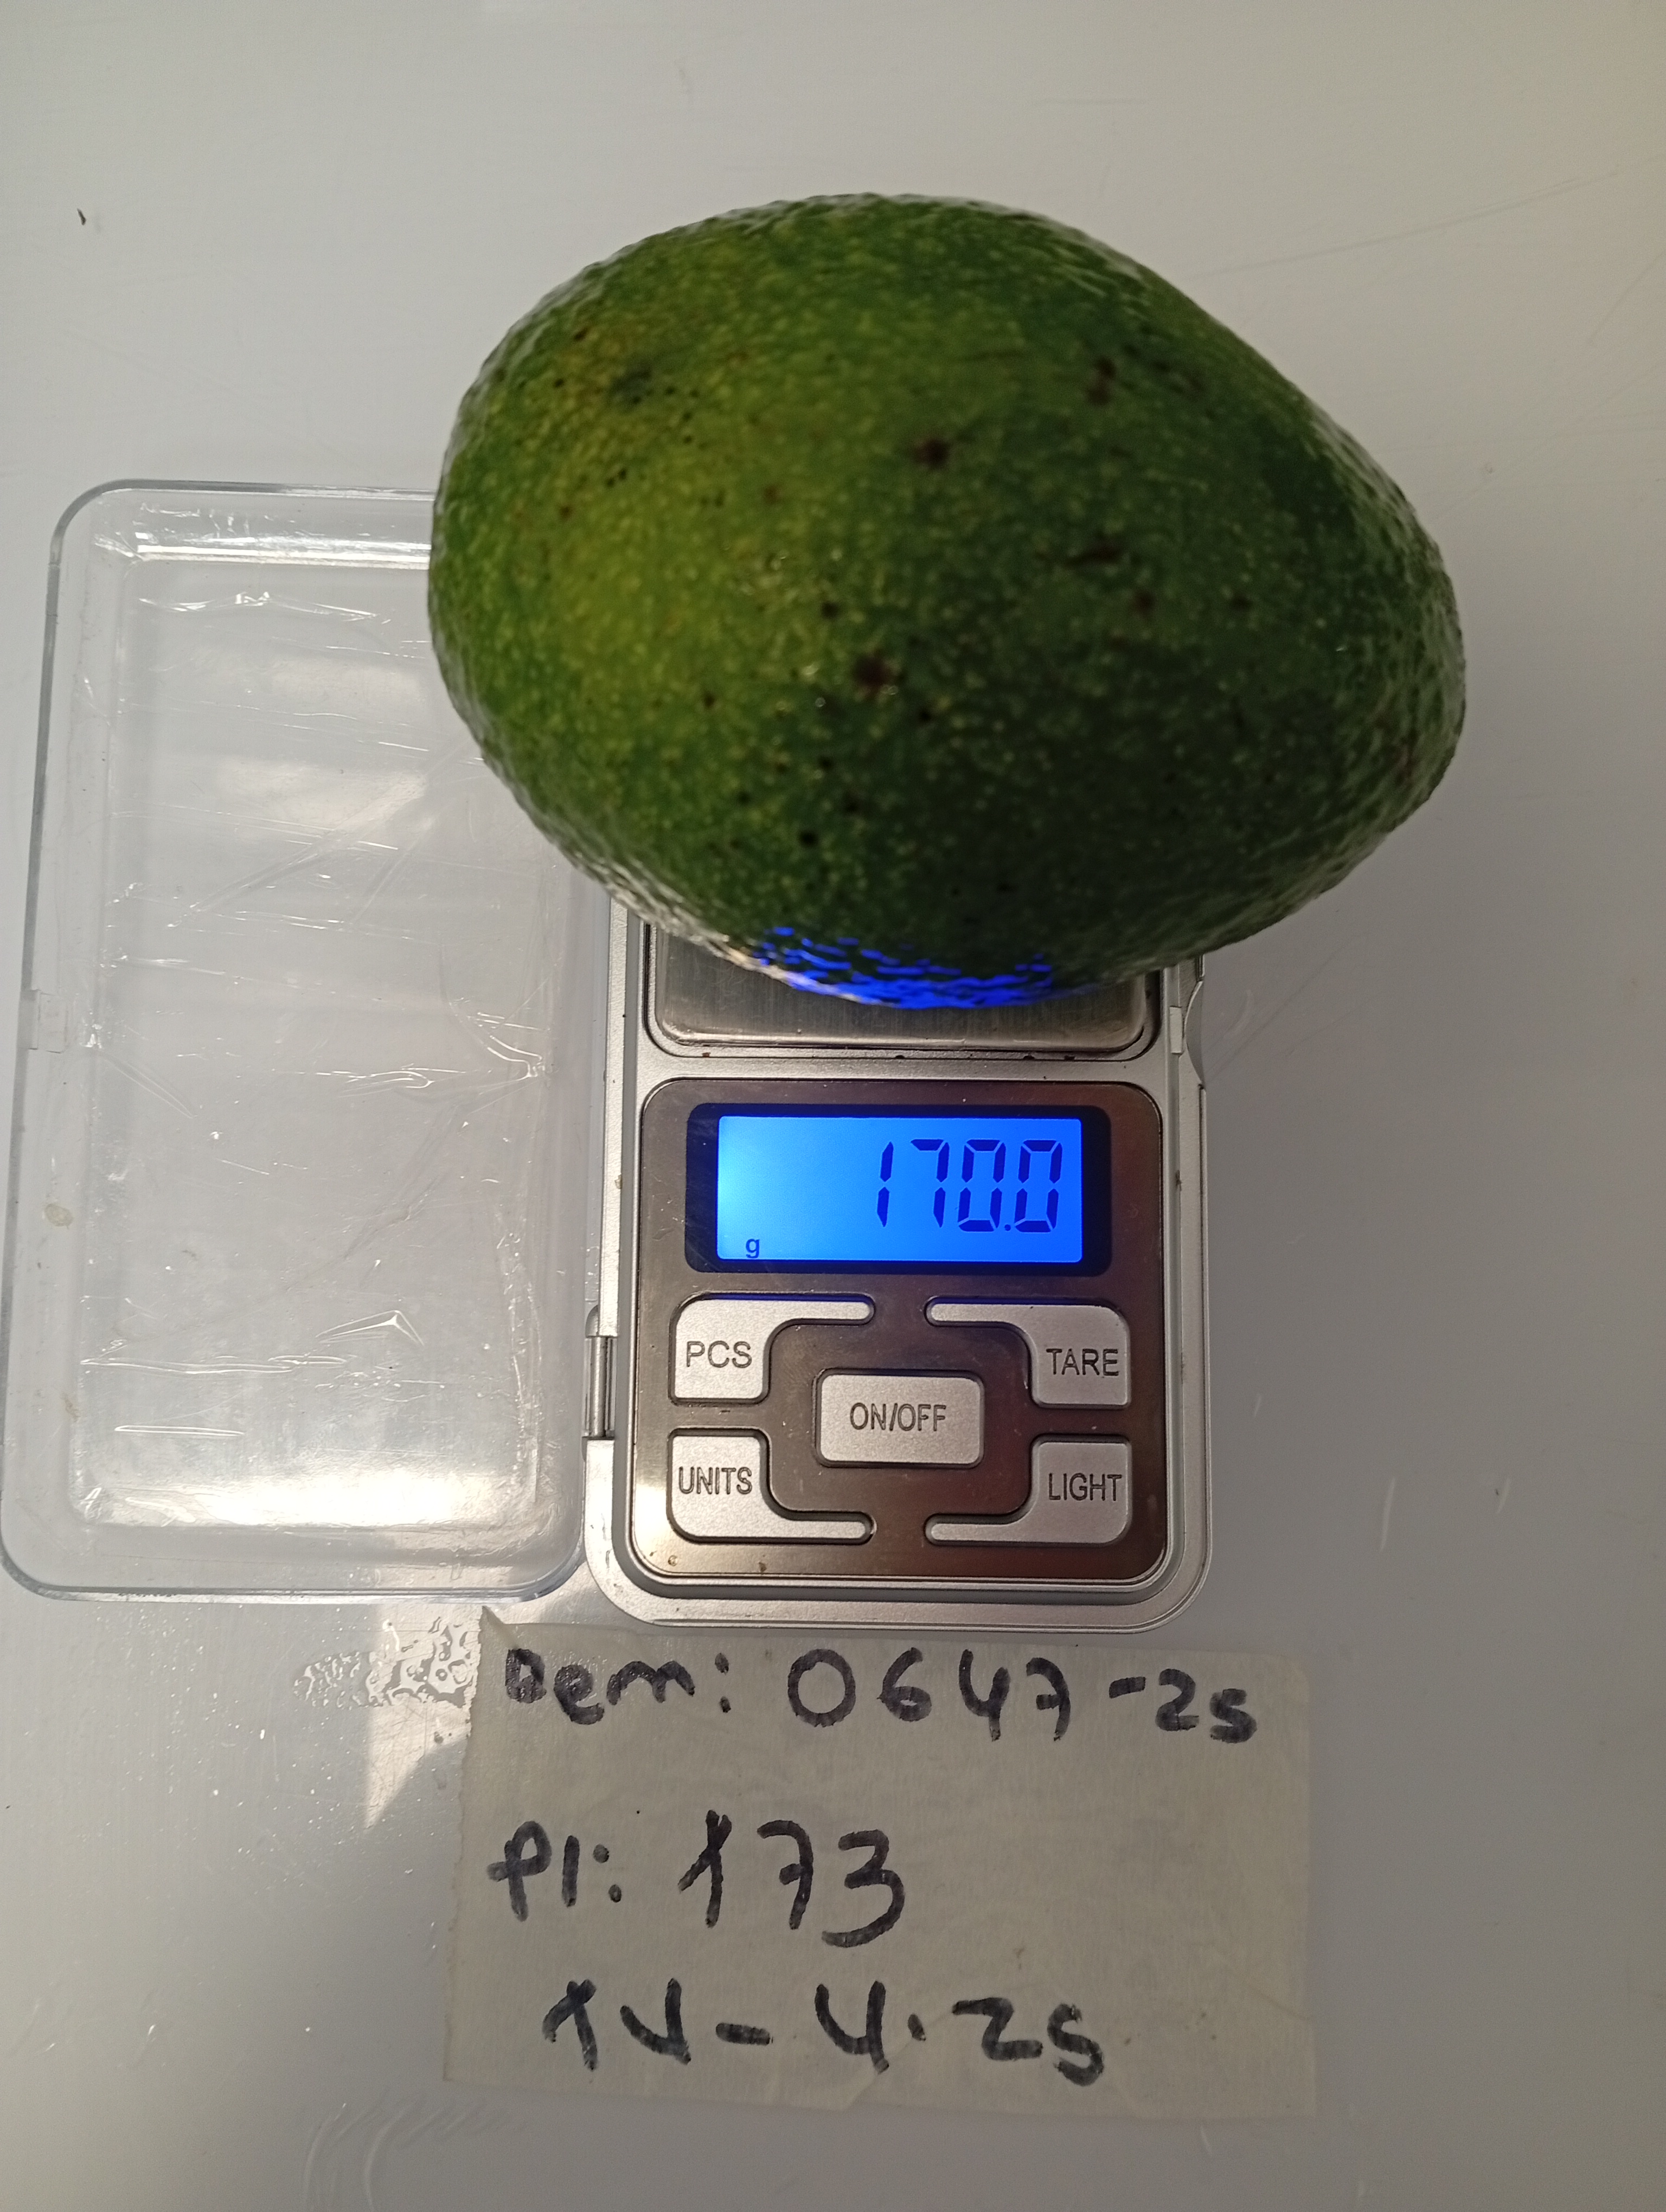 170.0
g
PCS TARE
ON/OFF
UNITS LIGHT
Dem: 0647-25
Pl: 173
1V-4.25